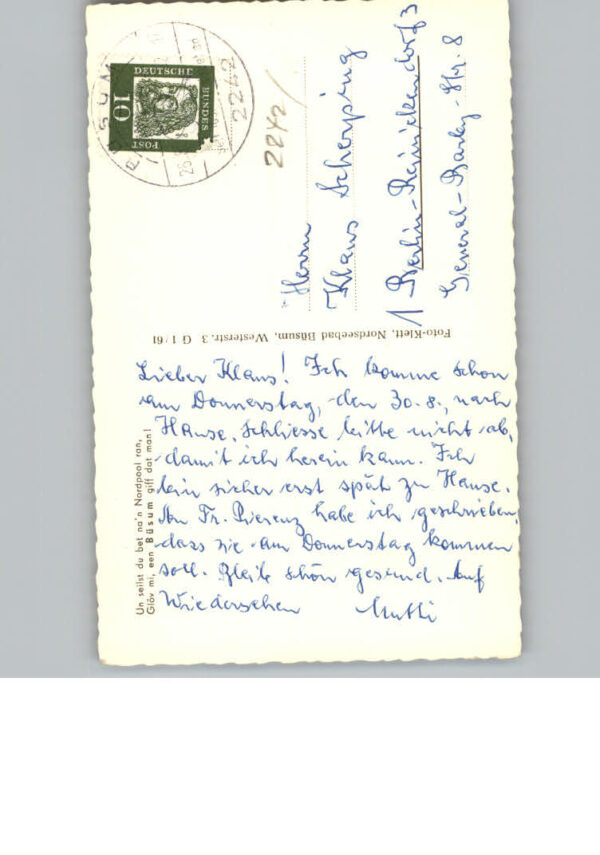 Lieber Klaus! Ich komme schon
am Donnerstag, den 30.8., nach
Hause. Schliesse bitte nicht ab,
damit ich herein kann. Ich
bin sicher erst spät zu Hause.
An Fr. Pierenz habe ich geschrieben,
dass sie am Donnerstag kommen
soll. Bleib schön gesund. Auf
Wiedersehen Mutti
Herrn
Klaus Scherping
1 Berlin-Reinickendorf 3
General-Barby-Str. 8
2242/
Foto-Klett, Nordseebad Büsum, Westerstr. 3 G 1/61
Un seilst du bet na'n Nordpool ran,
Glöv mi, een Büsum giff dat man!
DEUTSCHE
BUNDES
POST
10
BÜSUM
2242